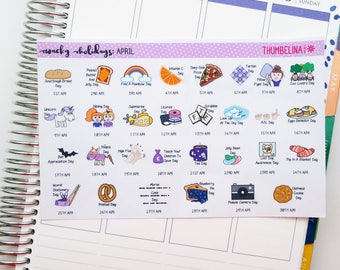 SUNDAY
wacky holidays: APRIL
THUMBELINA
Sourdough Bread Day
Peanut Butter And Jelly Day
Find A Rainbow Day
Vitamin C Day
Deep Dish Pizza Day
Tartan Day
Pillow Fight Day
Zoo Lovers Day
1ST APR
2ND APR
3RD APR
4TH APR
5TH APR
6TH APR
8TH APR
Unicorn Day
Sibling Day
Submarine Day
Licorice Day
Scrabble Day
Look Up At The Sky Day
Eggs Benedict Day
9TH APR
10TH APR
11TH APR
12TH APR
13TH APR
14TH APR
16TH APR
Bat Appreciation Day
High Five Day
Teach Your Children To Save Day
Tea Day
Jelly Bean Day
Lost Dog Awareness Day
Pig In A Blanket Day
17TH APR
19TH APR
20TH APR
21ST APR
22ND APR
23RD APR
24TH APR
World Stationery Day
Pretzel Day
Morse Code Day
Blueberry Pie Day
Pinhole Camera Day
Oatmeal Cookie Day
25TH APR
26TH APR
27TH APR
28TH APR
29TH APR
30TH APR